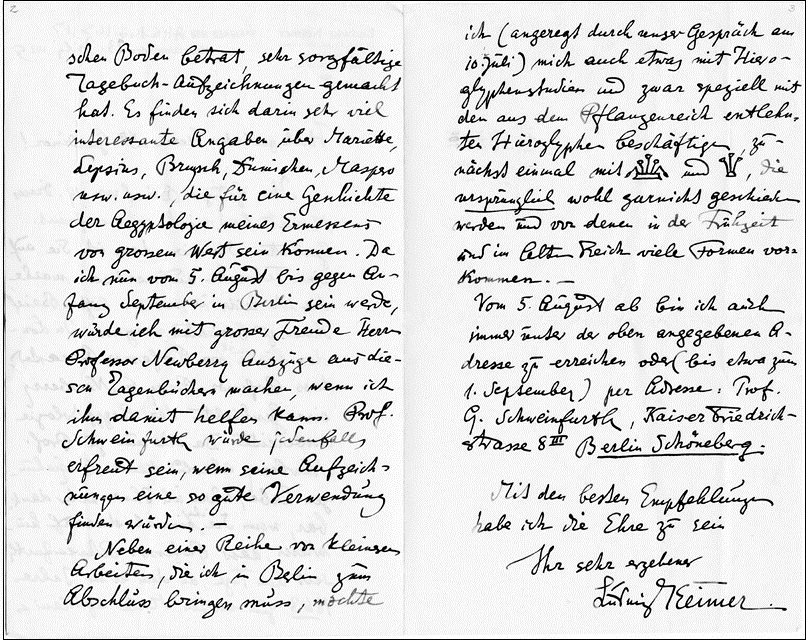 2
schen Boden betrat, sehr sorgfältige
Tagebuch-Aufzeichnungen gemacht
hat. Es finden sich darin sehr viel
interessante Angaben über Mariette,
Lepsius, Brugsch, Dümichen, Maspero
usw. usw., die für eine Geschichte
der Aegyptologie meines Ermessens
von grossem Wert sein können. Da
ich nun vom 5. August bis gegen An-
fang September in Berlin sein werde,
würde ich mit grosser Freude Herrn
Professor Newberry Auszüge aus die-
sen Tagenbüchern machen, wenn ich
ihm damit helfen kann. Prof.
Schweinfurth würde jedenfalls
erfreut sein, wenn seine Aufzeich-
nungen eine so gute Verwendung
finden würden. –
Neben einer Reihe von kleineren
Arbeiten, die ich in Berlin zum
Abschluss bringen muss, möchte
3
ich (angeregt durch unser Gespräch am
10. Juli) mich auch etwas mit Hiero-
glyphenstudien und zwar speziell mit
den aus dem Pflanzenreich entlehn-
ten Hieroglyphen beschäftigen, zu-
nächst einmal mit und , die
ursprünglich wohl garnicht geschieden
werden und von denen in der Frühzeit
und im Alten Reich viele Formen vor-
kommen. –
Vom 5. August ab bin ich auch
immer unter der oben angegebenen A-
dresse zu erreichen oder (bis etwa zum
1. September) per Adresse: Prof.
G. Schweinfurth, Kaiser Friedrich-
strasse 8 III Berlin Schöneberg.
Mit den besten Empfehlungen
habe ich die Ehre zu sein
Ihr sehr ergebener
Ludwig Keimer.